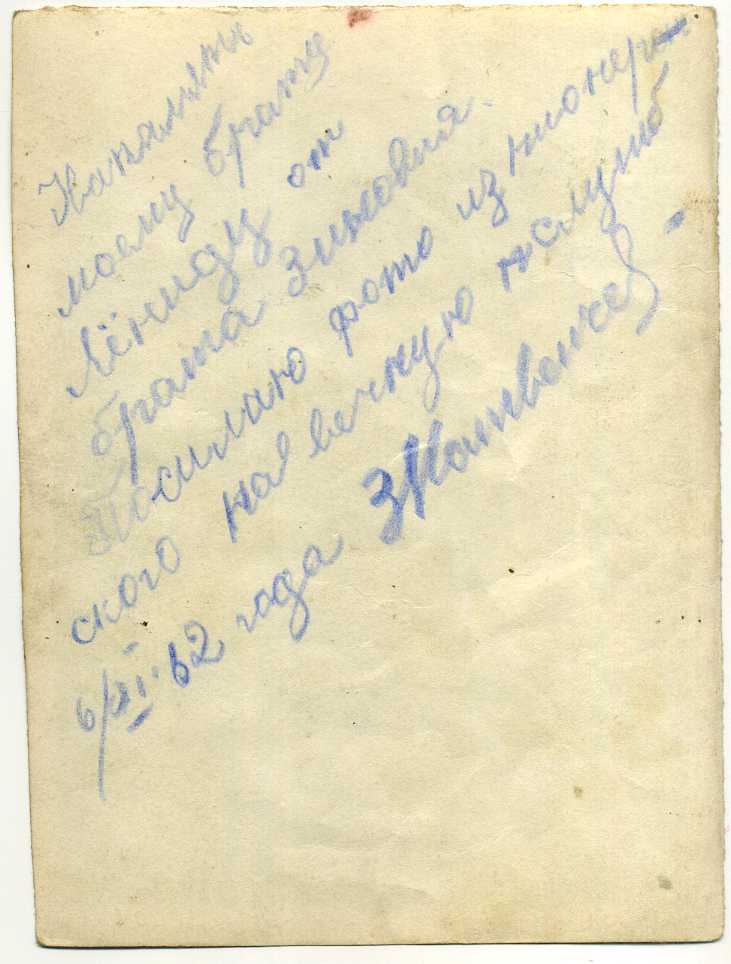 На память
моему брату
Лёниду от
брата Зиновия.
Посилаю фото из пионер-
ского на вечную
6/XI-62 года ЗМатвенчев